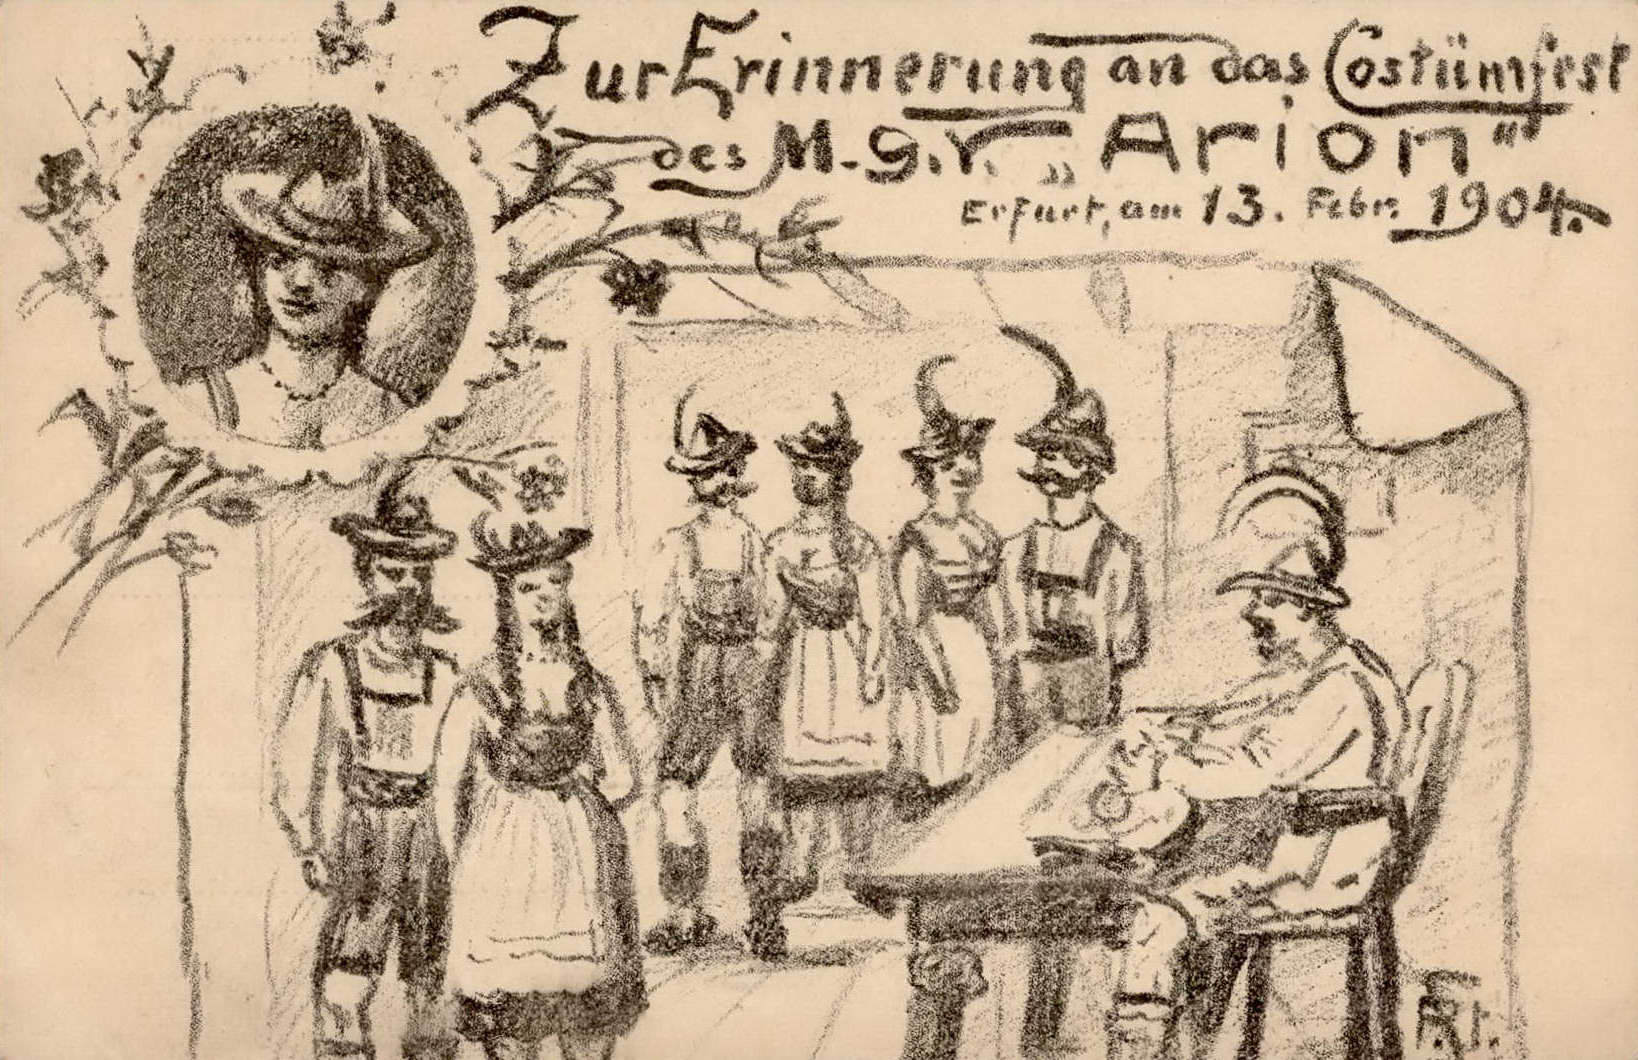 Zur Erinnerung an das Costümfest
des M.-G.V. „Arion“
Erfurt, am 13. Febr. 1904.